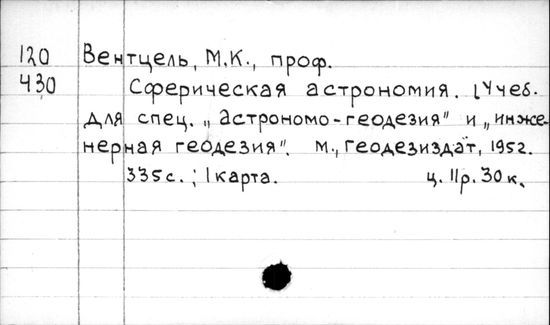 120 Вентцель, М.К., проф.
430 Сферическая астрономия. [Учеб.
для спец. „астрономо-геодезия" и „инже-
нерная геодезия". М., Геодезиздат, 1952.
335с. ; 1 карта. ц. 11р. 30к.